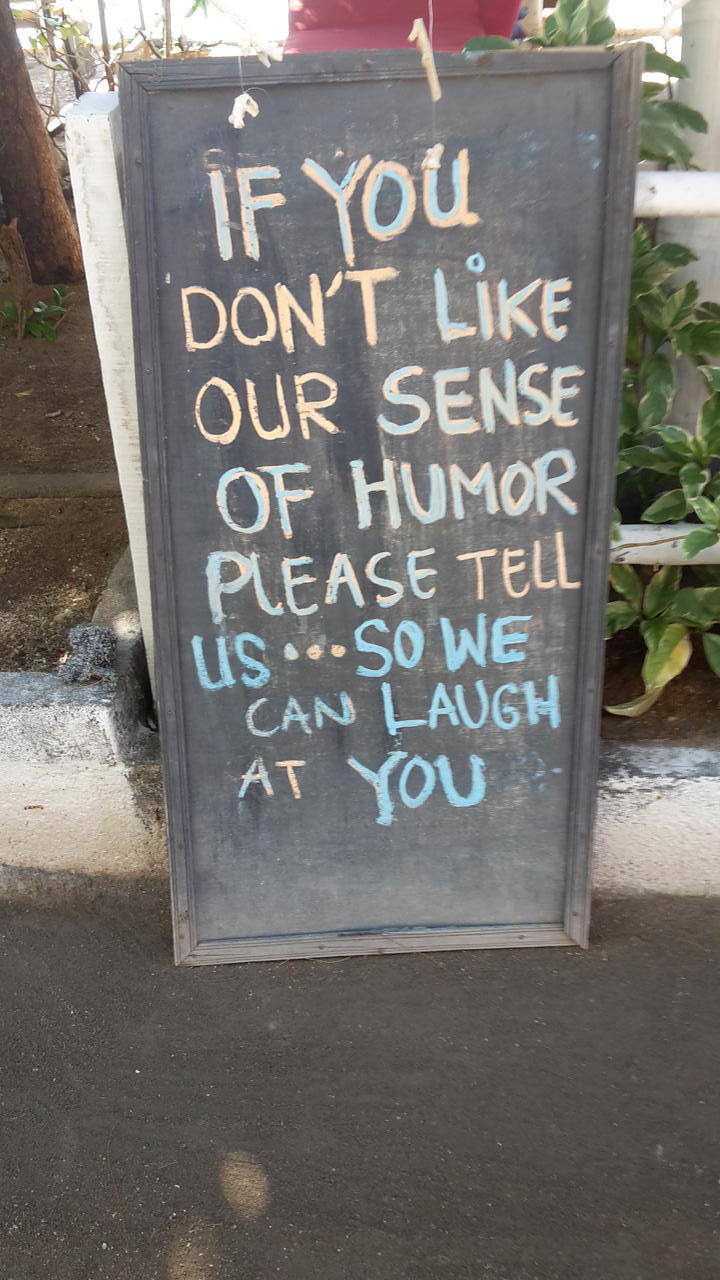 IF YOU
DON'T LiKE
OUR SENSE
OF HUMOR
PLEASE TELL
US...SO WE
CAN LAUGH
AT YOU